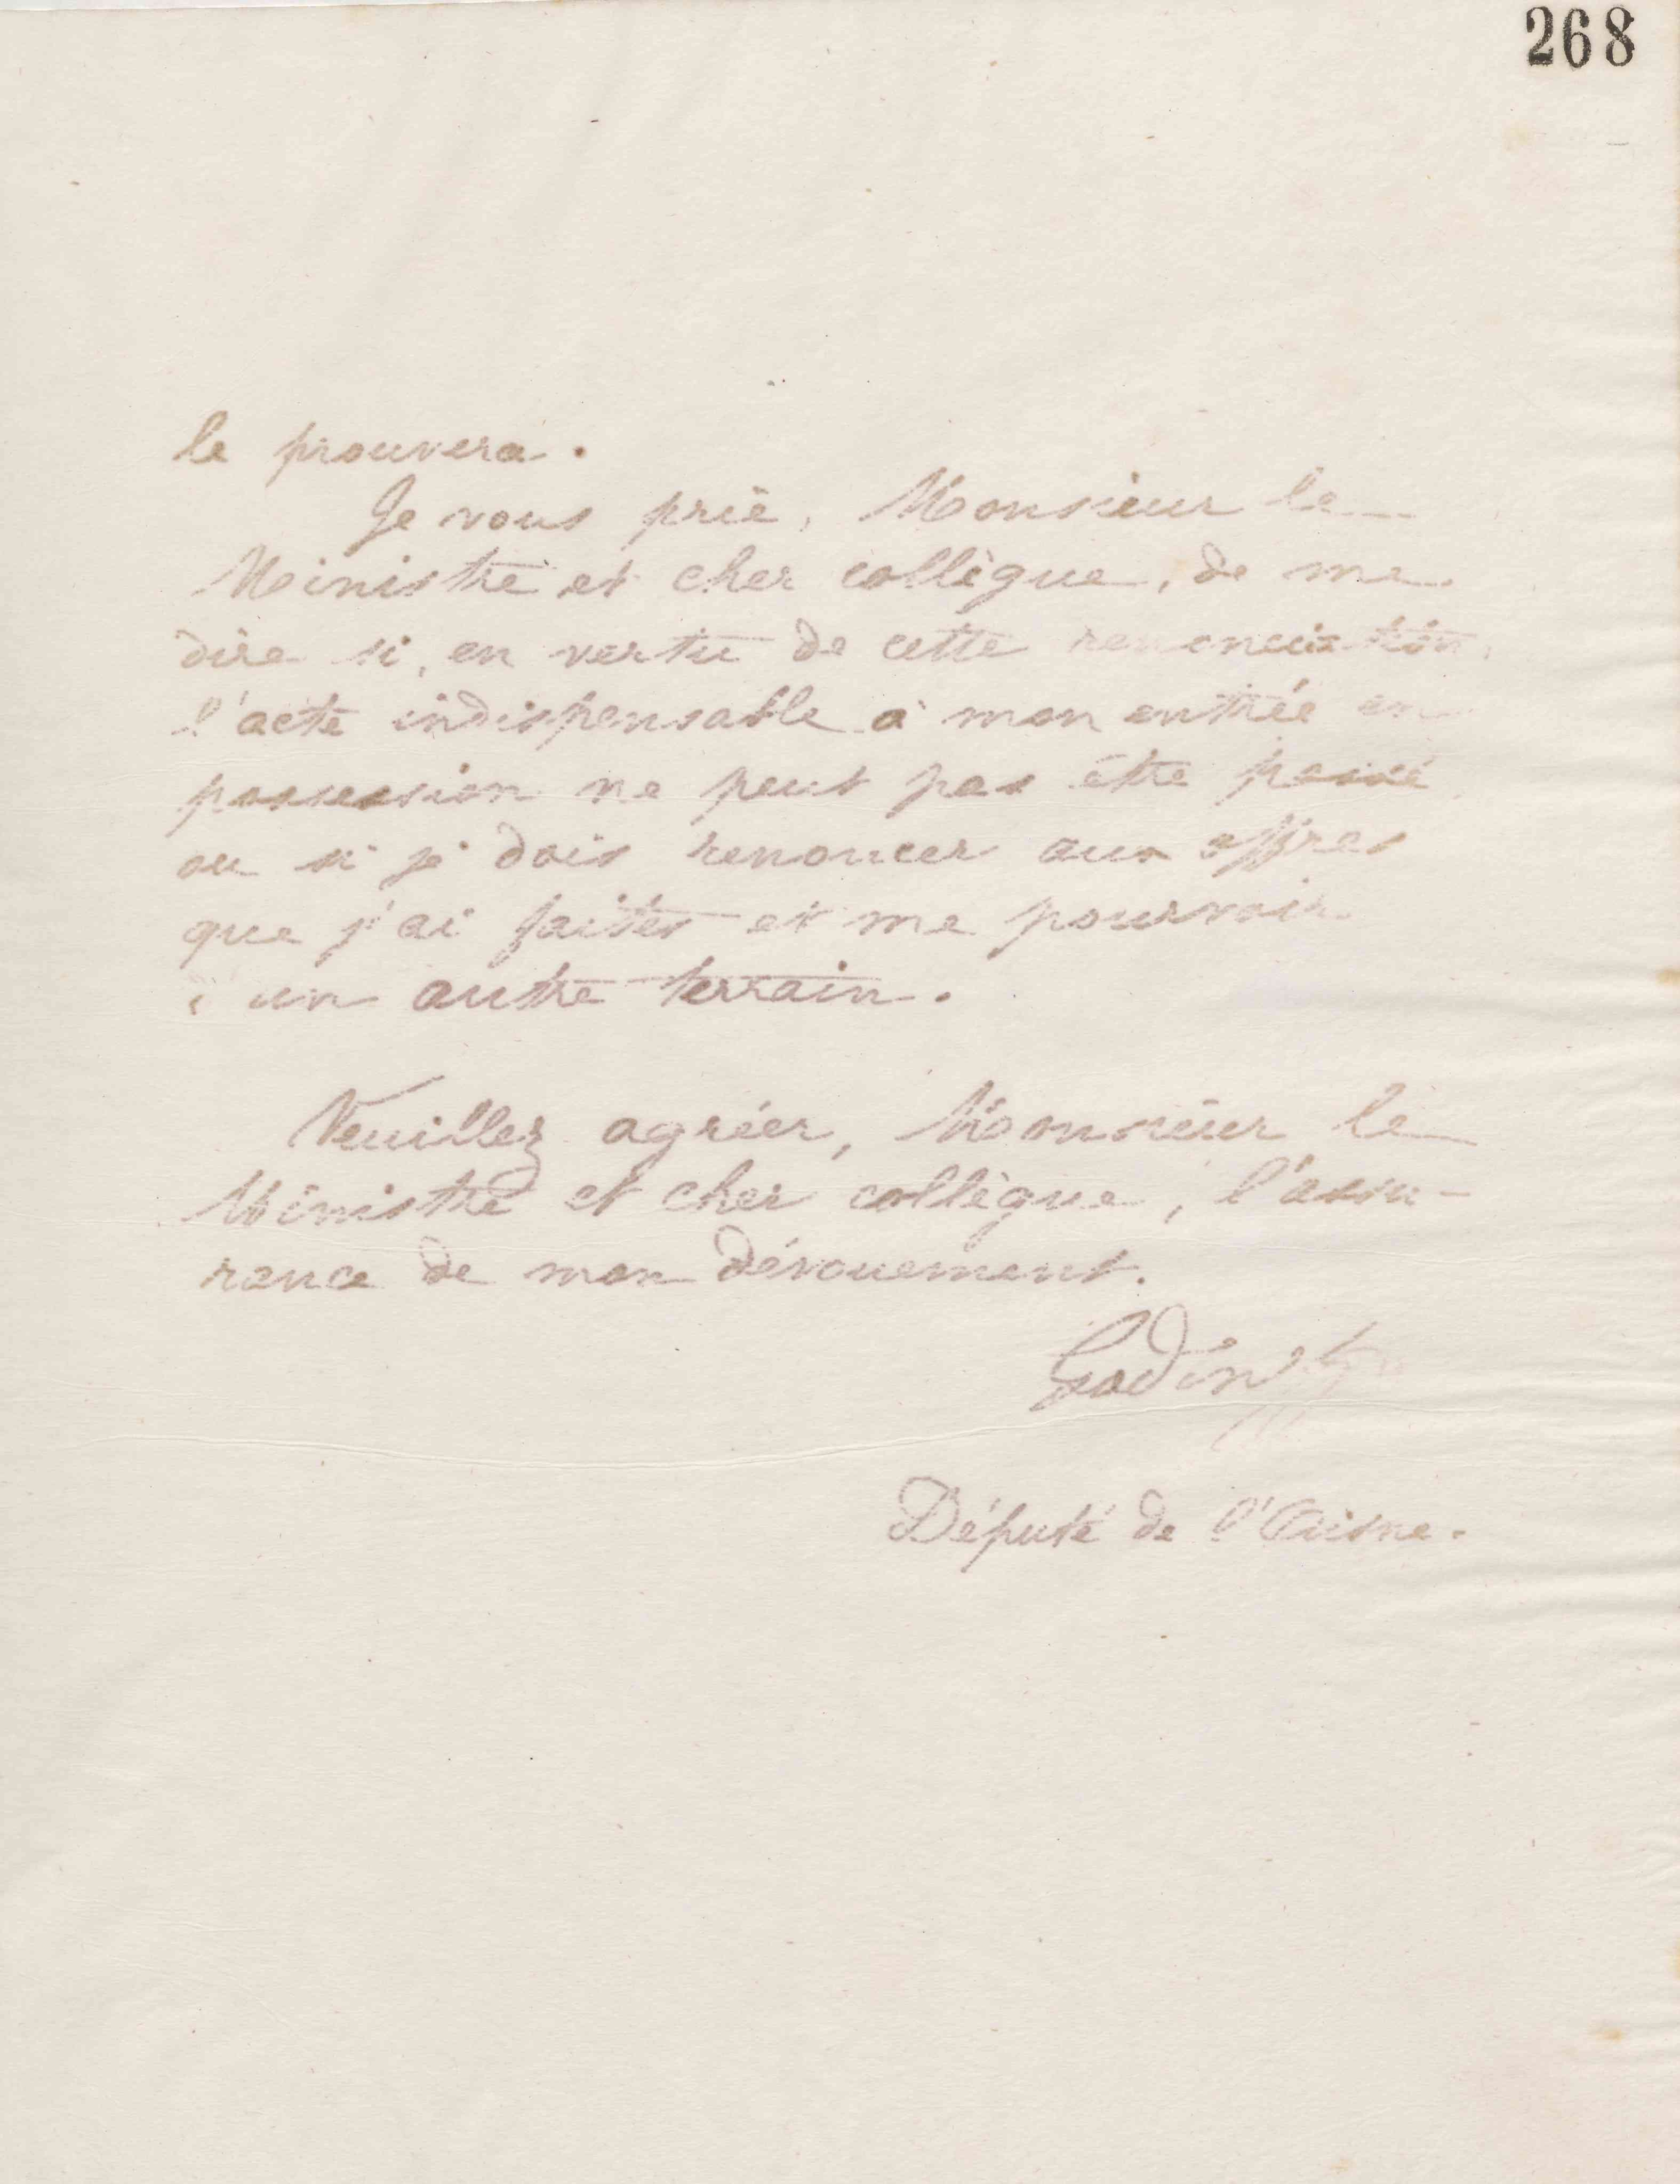 268
le prouvera.
Je vous prie, Monsieur le
Ministre et cher collègue, de me
dire si, en vertu de cette renonciation,
l'acte indispensable à mon entrée en
possession ne peut pas être passé
ou si je dois renoncer aux offres
que j'ai faites et me pourvoir
un autre terrain.
Veuillez agréer, Monsieur le
Ministre et cher collègue, l'assu-
rance de mon dévouement.
Godin
Député de l'Aisne.